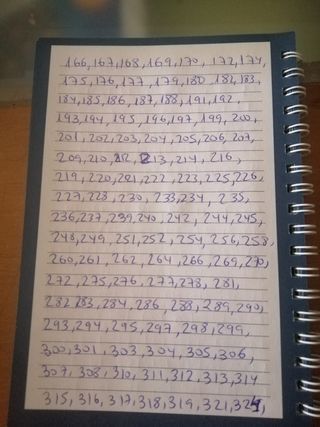 166,167,168,169,170, 172,174,
175,176,177,179,180 182,183,
184,185,186,187,188,191,192,
193,194,195,196,197,199,200,
201,202,203,204,205,206,207,
209,210,212,213,214,216,
219,220,221,222,223,225,226,
227,228,230,233,234,235,
236,237,239,240,242,244,245,
248,249,251,252,254,256,258,
260,261,262,264,266,269,270,
272,275,276,277,278,281,
282 283,284,286,288,289,290,
293,294,295,297,298,299,
300,301,303,304,305,306,
307,308,310,311,312,313,314
315,316,317,318,319,321,324,